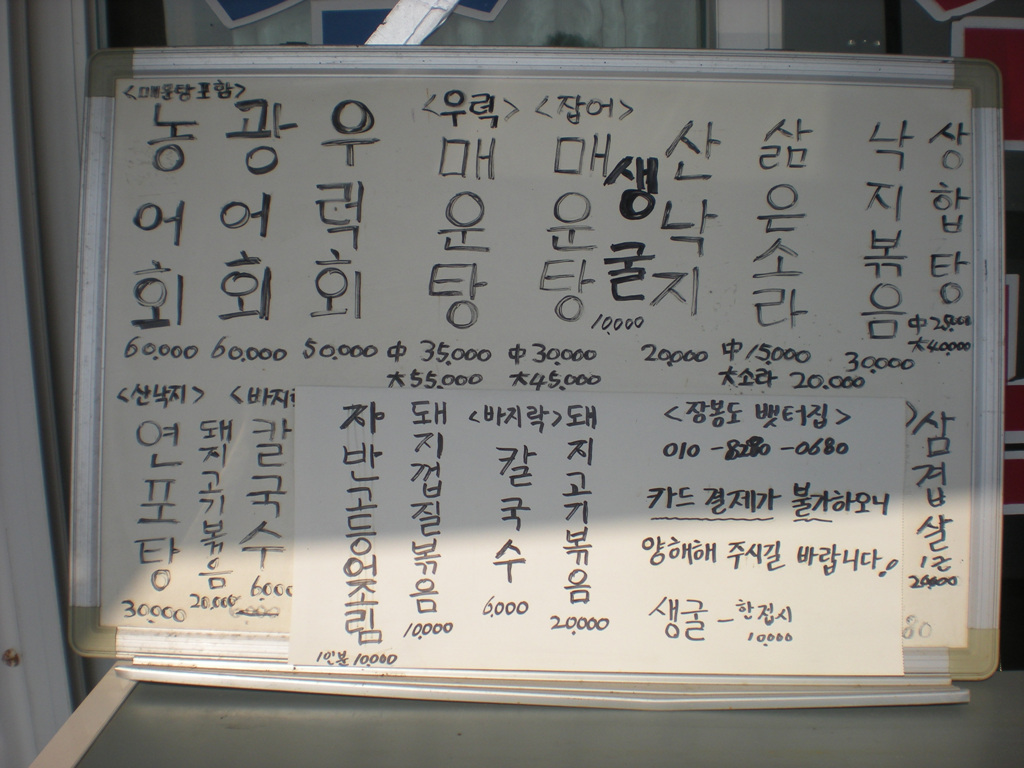 <매운탕포함>
농어회
60,000
광어회
60,000
우럭회
50,000
<우럭>
매운탕
中 35,000
大 55,000
<잡어>
매운탕
中 30,000
大 45,000
생굴
10,000
산낙지
20,000
삶은소라
中 15,000
大소라 20,000
낙지볶음
30,000
상합탕
大 40,000
<산낙지>
연포탕
30,000
돼지고기볶음
20,000
<바지
칼국수
6,000
자반고등어조림
1인분 10,000
돼지껍질볶음
10,000
<바지락>
칼국수
6,000
돼지고기볶음
20,000
<장봉도 뱃터집>
010-8280-0680
카드 결제가 불가하오니
양해해 주시길 바랍니다!
생굴 - 한접시
10,000
삼겹살
20,000